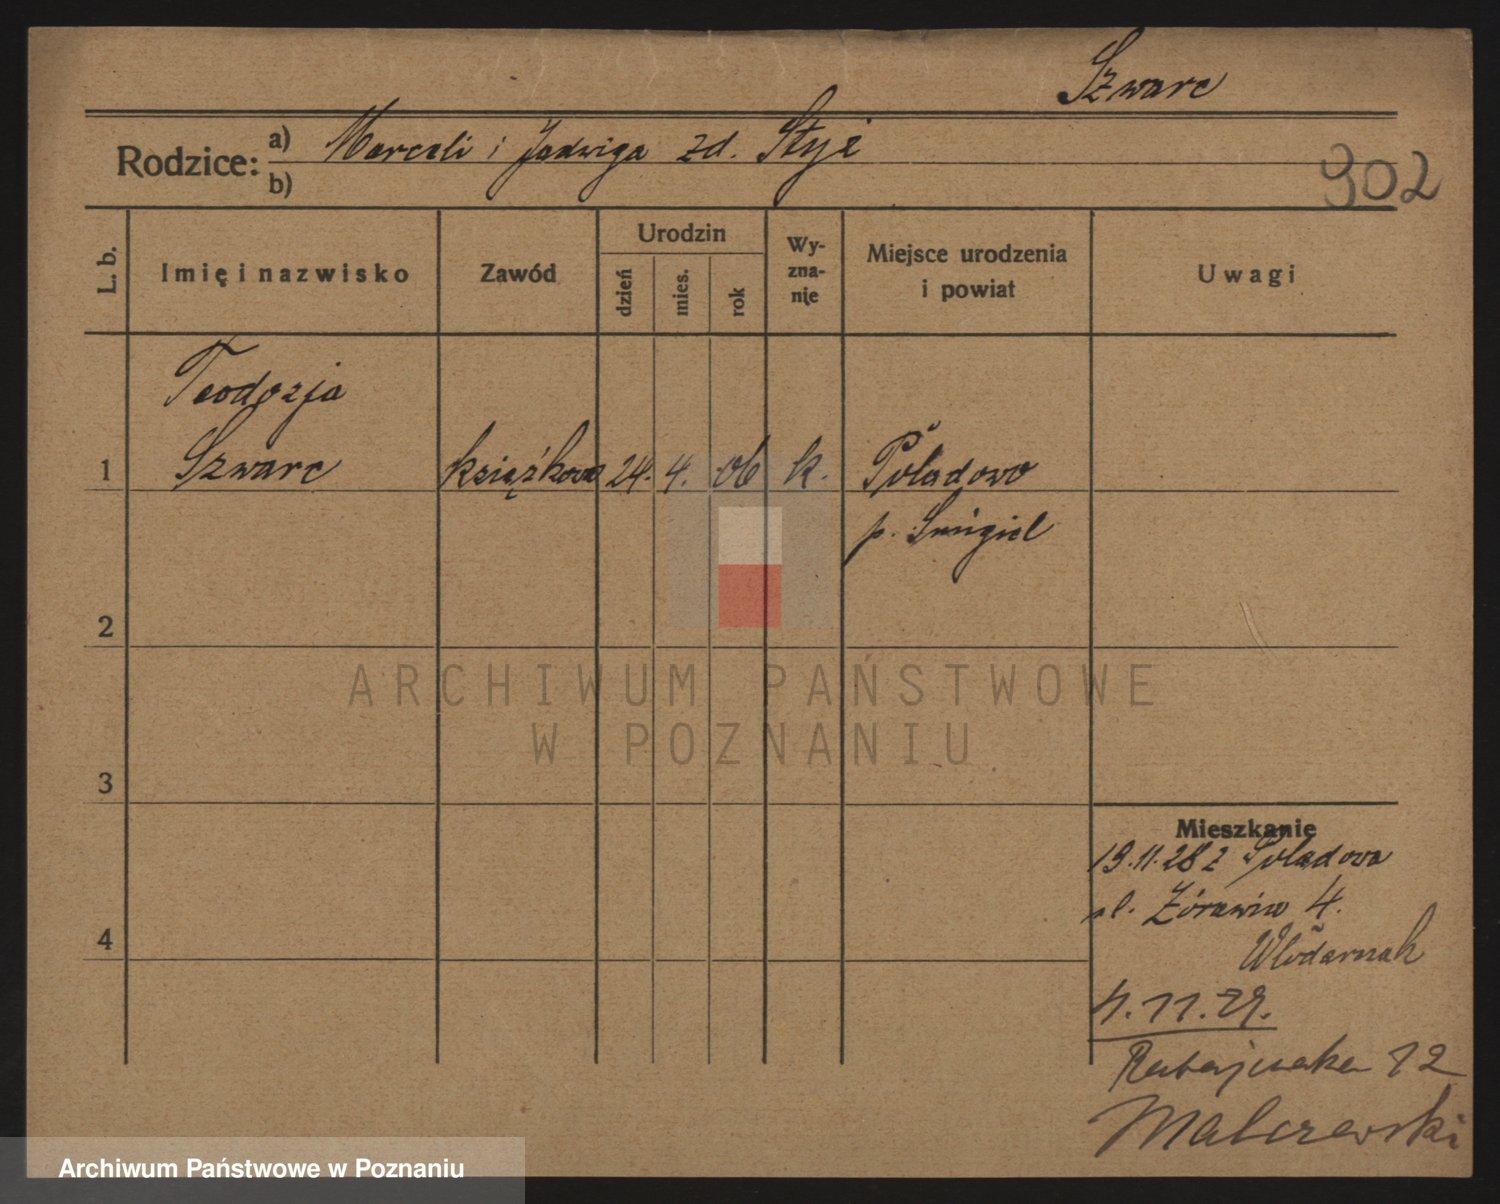 Szwarc
Rodzice: a) Marceli i Jadwiga zd. Styź
b)
902
L. b.
Imię i nazwisko
Zawód
Urodzin
dzień
mies.
rok
Wy-
zna-
nie
Miejsce urodzenia
i powiat
Uwagi
Teodozja
1 Szwarc książkowa 24. 4. 06 k. Poladowo
p. Śmigiel
2
3
4
Mieszkanie
19.11.28 z Poladowa
ul. Żórawia 4.
Włodarczak
4.11.29.
Ratajczaka 12
Malczewski
ARCHIWUM PAŃSTWOWE
W POZNANIU
Archiwum Państwowe w Poznaniu